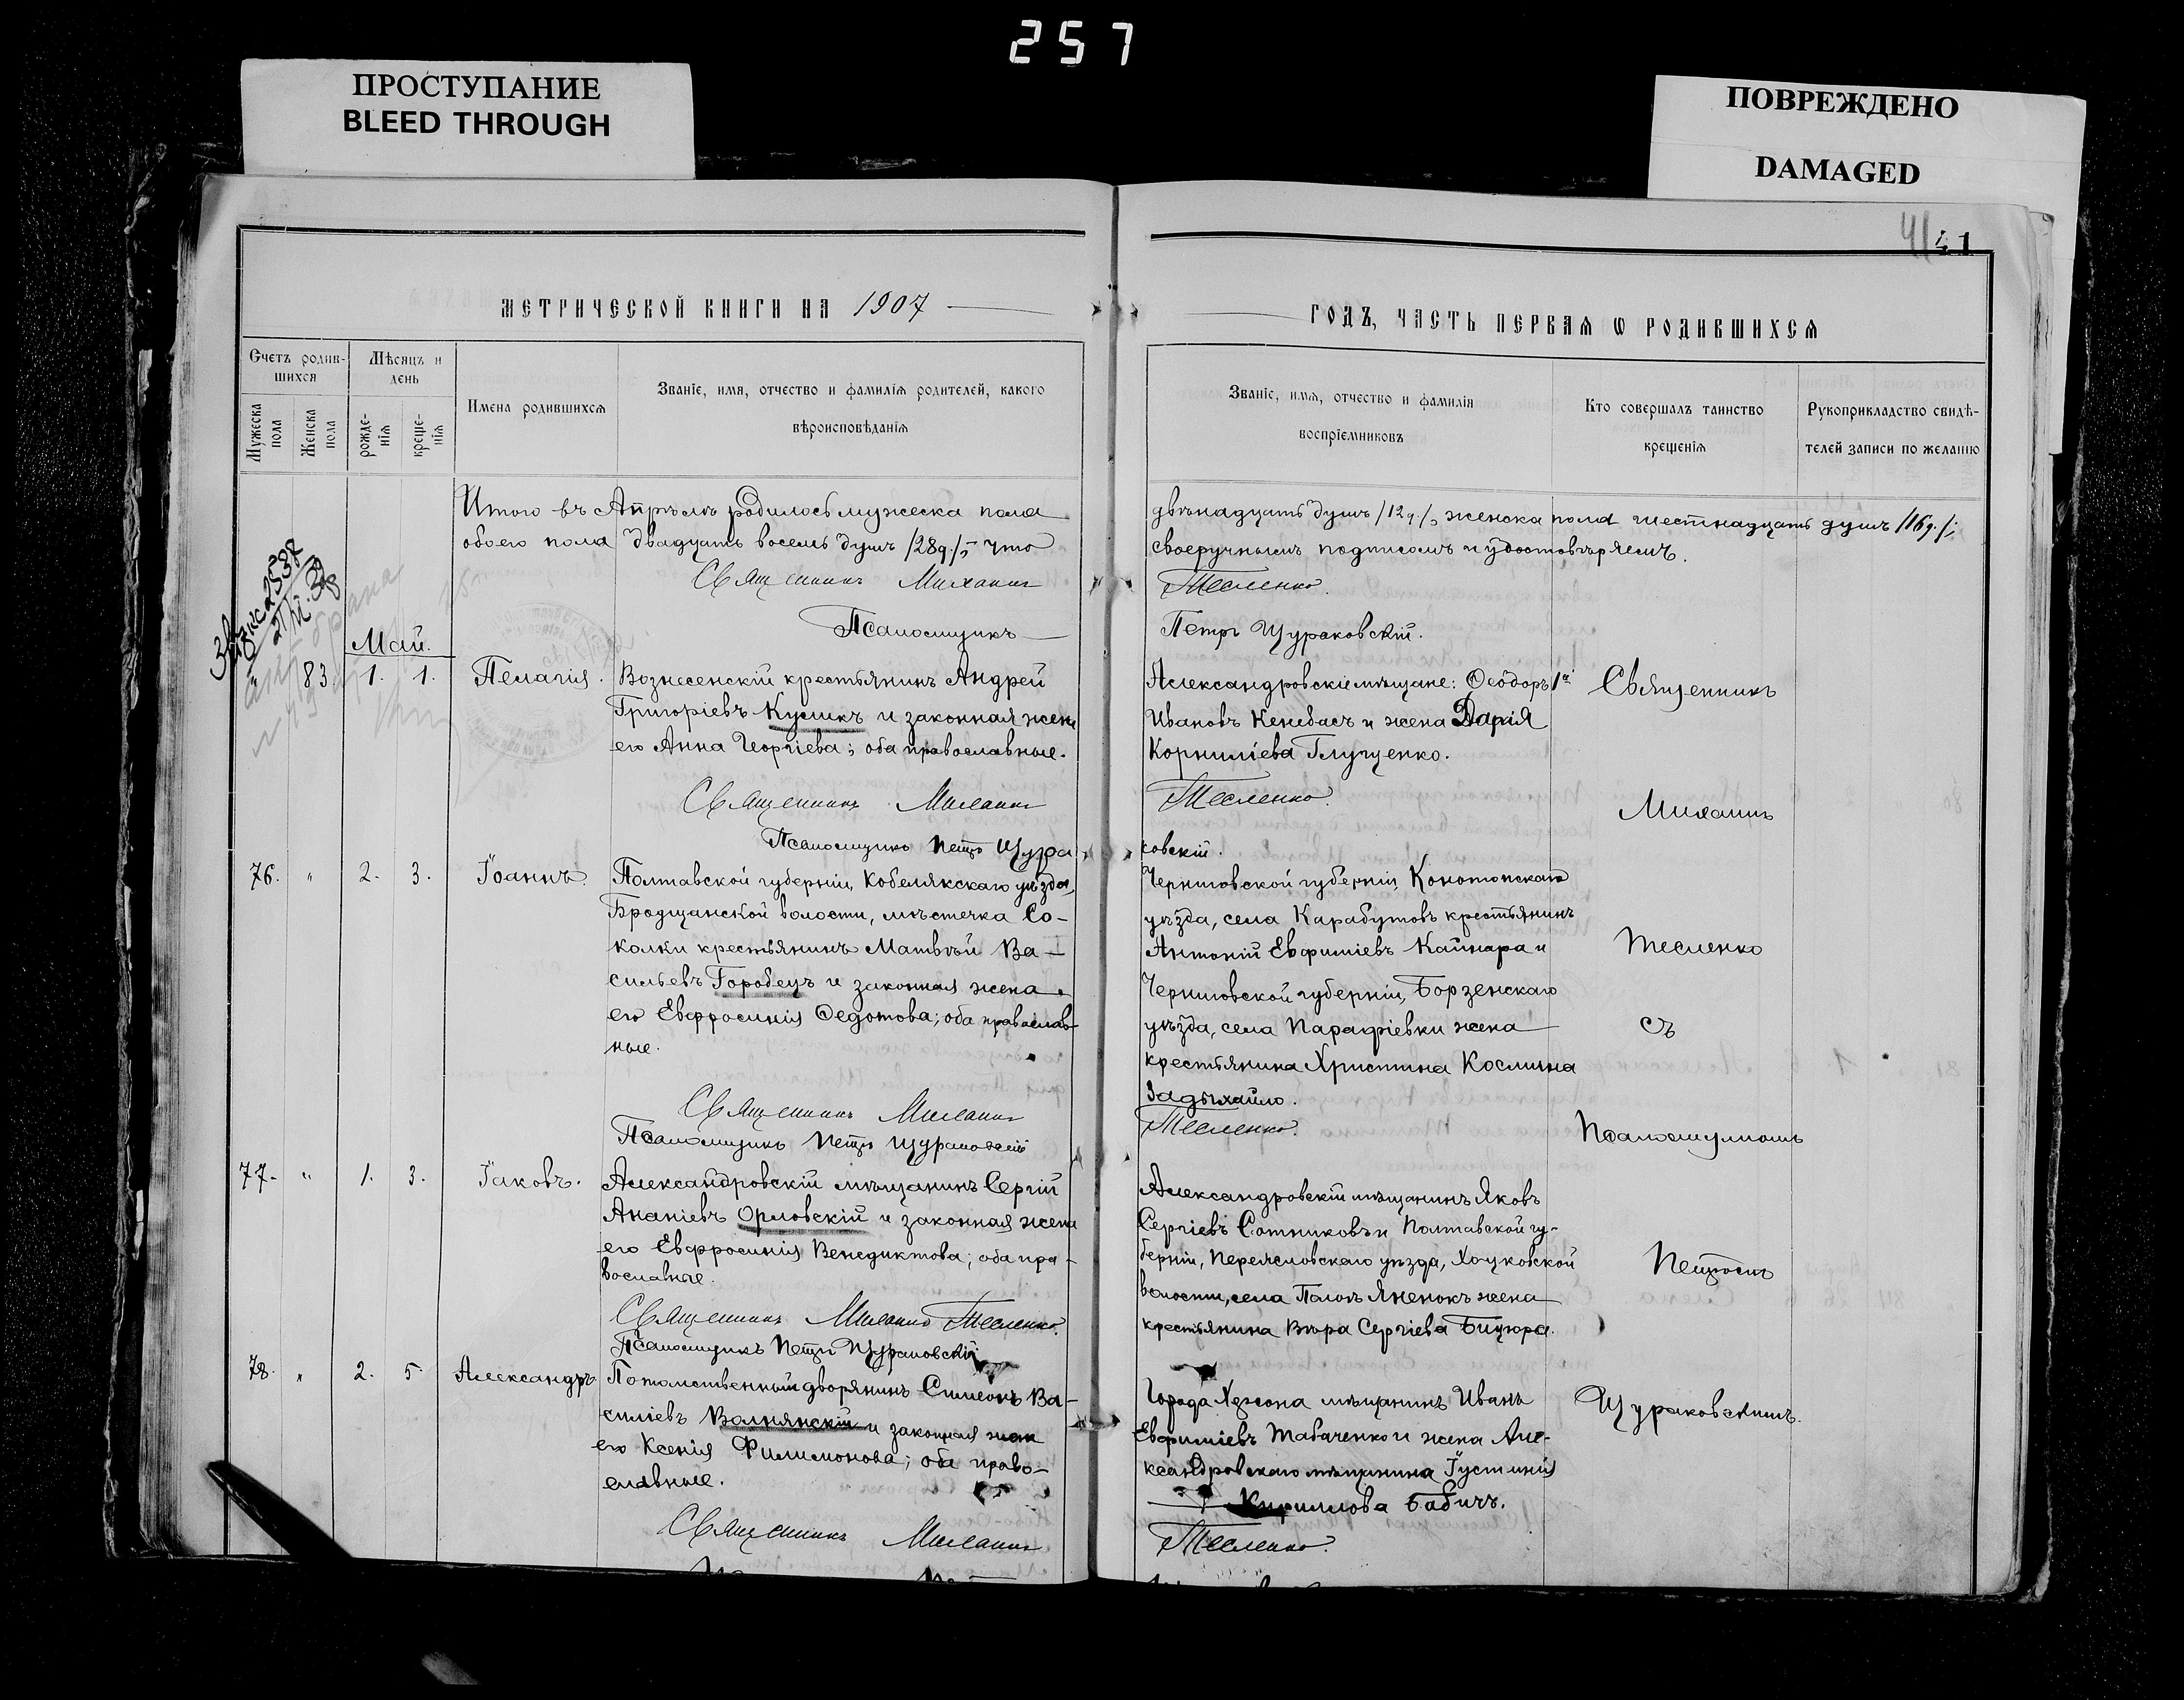 257
ПРОСТУПАНИЕ
BLEED THROUGH
ПОВРЕЖДЕНО
DAMAGED
41
МЕТРИЧЕСКОЙ КНИГИ НА 1907
Счетъ родив-
шихся
Мѣсяцъ и
день
Мужеска
пола
Женска
пола
рожде-
нія
креще-
нія
Имена родившихся
Званіе, имя, отчество и фамилія родителей, какого
вѣроисповѣданія
Итого въ Апрѣлѣ родилось мужеска пола
обоего пола двадцать восемь душъ /28д./, что
Священникъ Михаилъ
Псаломщикъ
Май.
" 83. 1. 1. Пелагія. Вознесенскій крестьянинъ Андрей
Григоріевъ Куликъ и законная жена
его Анна Георгіева; оба православные.
Священникъ Михаилъ
Псаломщикъ Петръ Щура
76. " 2. 3. Іоаннъ. Полтавской губерніи, Кобелякскаго уѣзда,
Бродщанской волости, мѣстечка Со-
колки крестьянинъ Матвѣй Ва-
сильевъ Горобецъ и законная жена
его Евфросинія Федотова; оба православ-
ные.
Священникъ Михаилъ
Псаломщикъ Петръ Щураковскій
77. " 1. 3. Іаковъ. Александровскій мѣщанинъ Сергій
Ананіевъ Орловскій и законная жена
его Евфросинія Венедиктова; оба пра-
вославные.
Священникъ Михаилъ Тесленко.
Псаломщикъ Петръ Щураковскій
78. " 2. 5. Александръ. Потомственный дворянинъ Симеонъ Ва-
силіевъ Волнянскій и законная жена
его Ксенія Филимонова; оба право-
славные.
Священникъ Михаилъ
ГОДЪ, ЧАСТЬ ПЕРВАЯ Ѡ РОДИВШИХСЯ
Званіе, имя, отчество и фамилія
воспріемниковъ
Кто совершалъ таинство
крещенія
Рукоприкладство свидѣ-
телей записи по желанію
двѣнадцать душъ /12д./, женска пола шестнадцать душъ /16д./;
своеручнымъ подписомъ и удостовѣряемъ.
Тесленко.
Петръ Щураковскій.
Александровскіе мѣщане: Феодоръ
Ивановъ Кенебасъ и жена Дарія
Корниліева Глущенко.
Тесленко.
ковскій.
Черниговской губерніи, Конотопскаго
уѣзда, села Карабутовъ крестьянинъ
Антоній Евфиміевъ Кайнара и
Черниговской губерніи, Борзенскаго
уѣзда, села Парафіевки жена
крестьянина Христина Космична
Задыхайло.
Тесленко.
Александровскій мѣщанинъ Яковъ
Сергіевъ Сотниковъ и Полтавской гу-
берніи, Переяславскаго уѣзда, Хоцковской
волости, села Яненокъ жена
крестьянина Вѣра Сергіева Бицюра.
Города Херсона мѣщанинъ Иванъ
Евфиміевъ Табаченко и жена Але-
ксандровскаго мѣщанина Іустинія
Кириллова Бабичъ.
Тесленко.
Священникъ
Михаилъ
Тесленко
съ
Псаломщикомъ
Петромъ
Щураковскимъ.